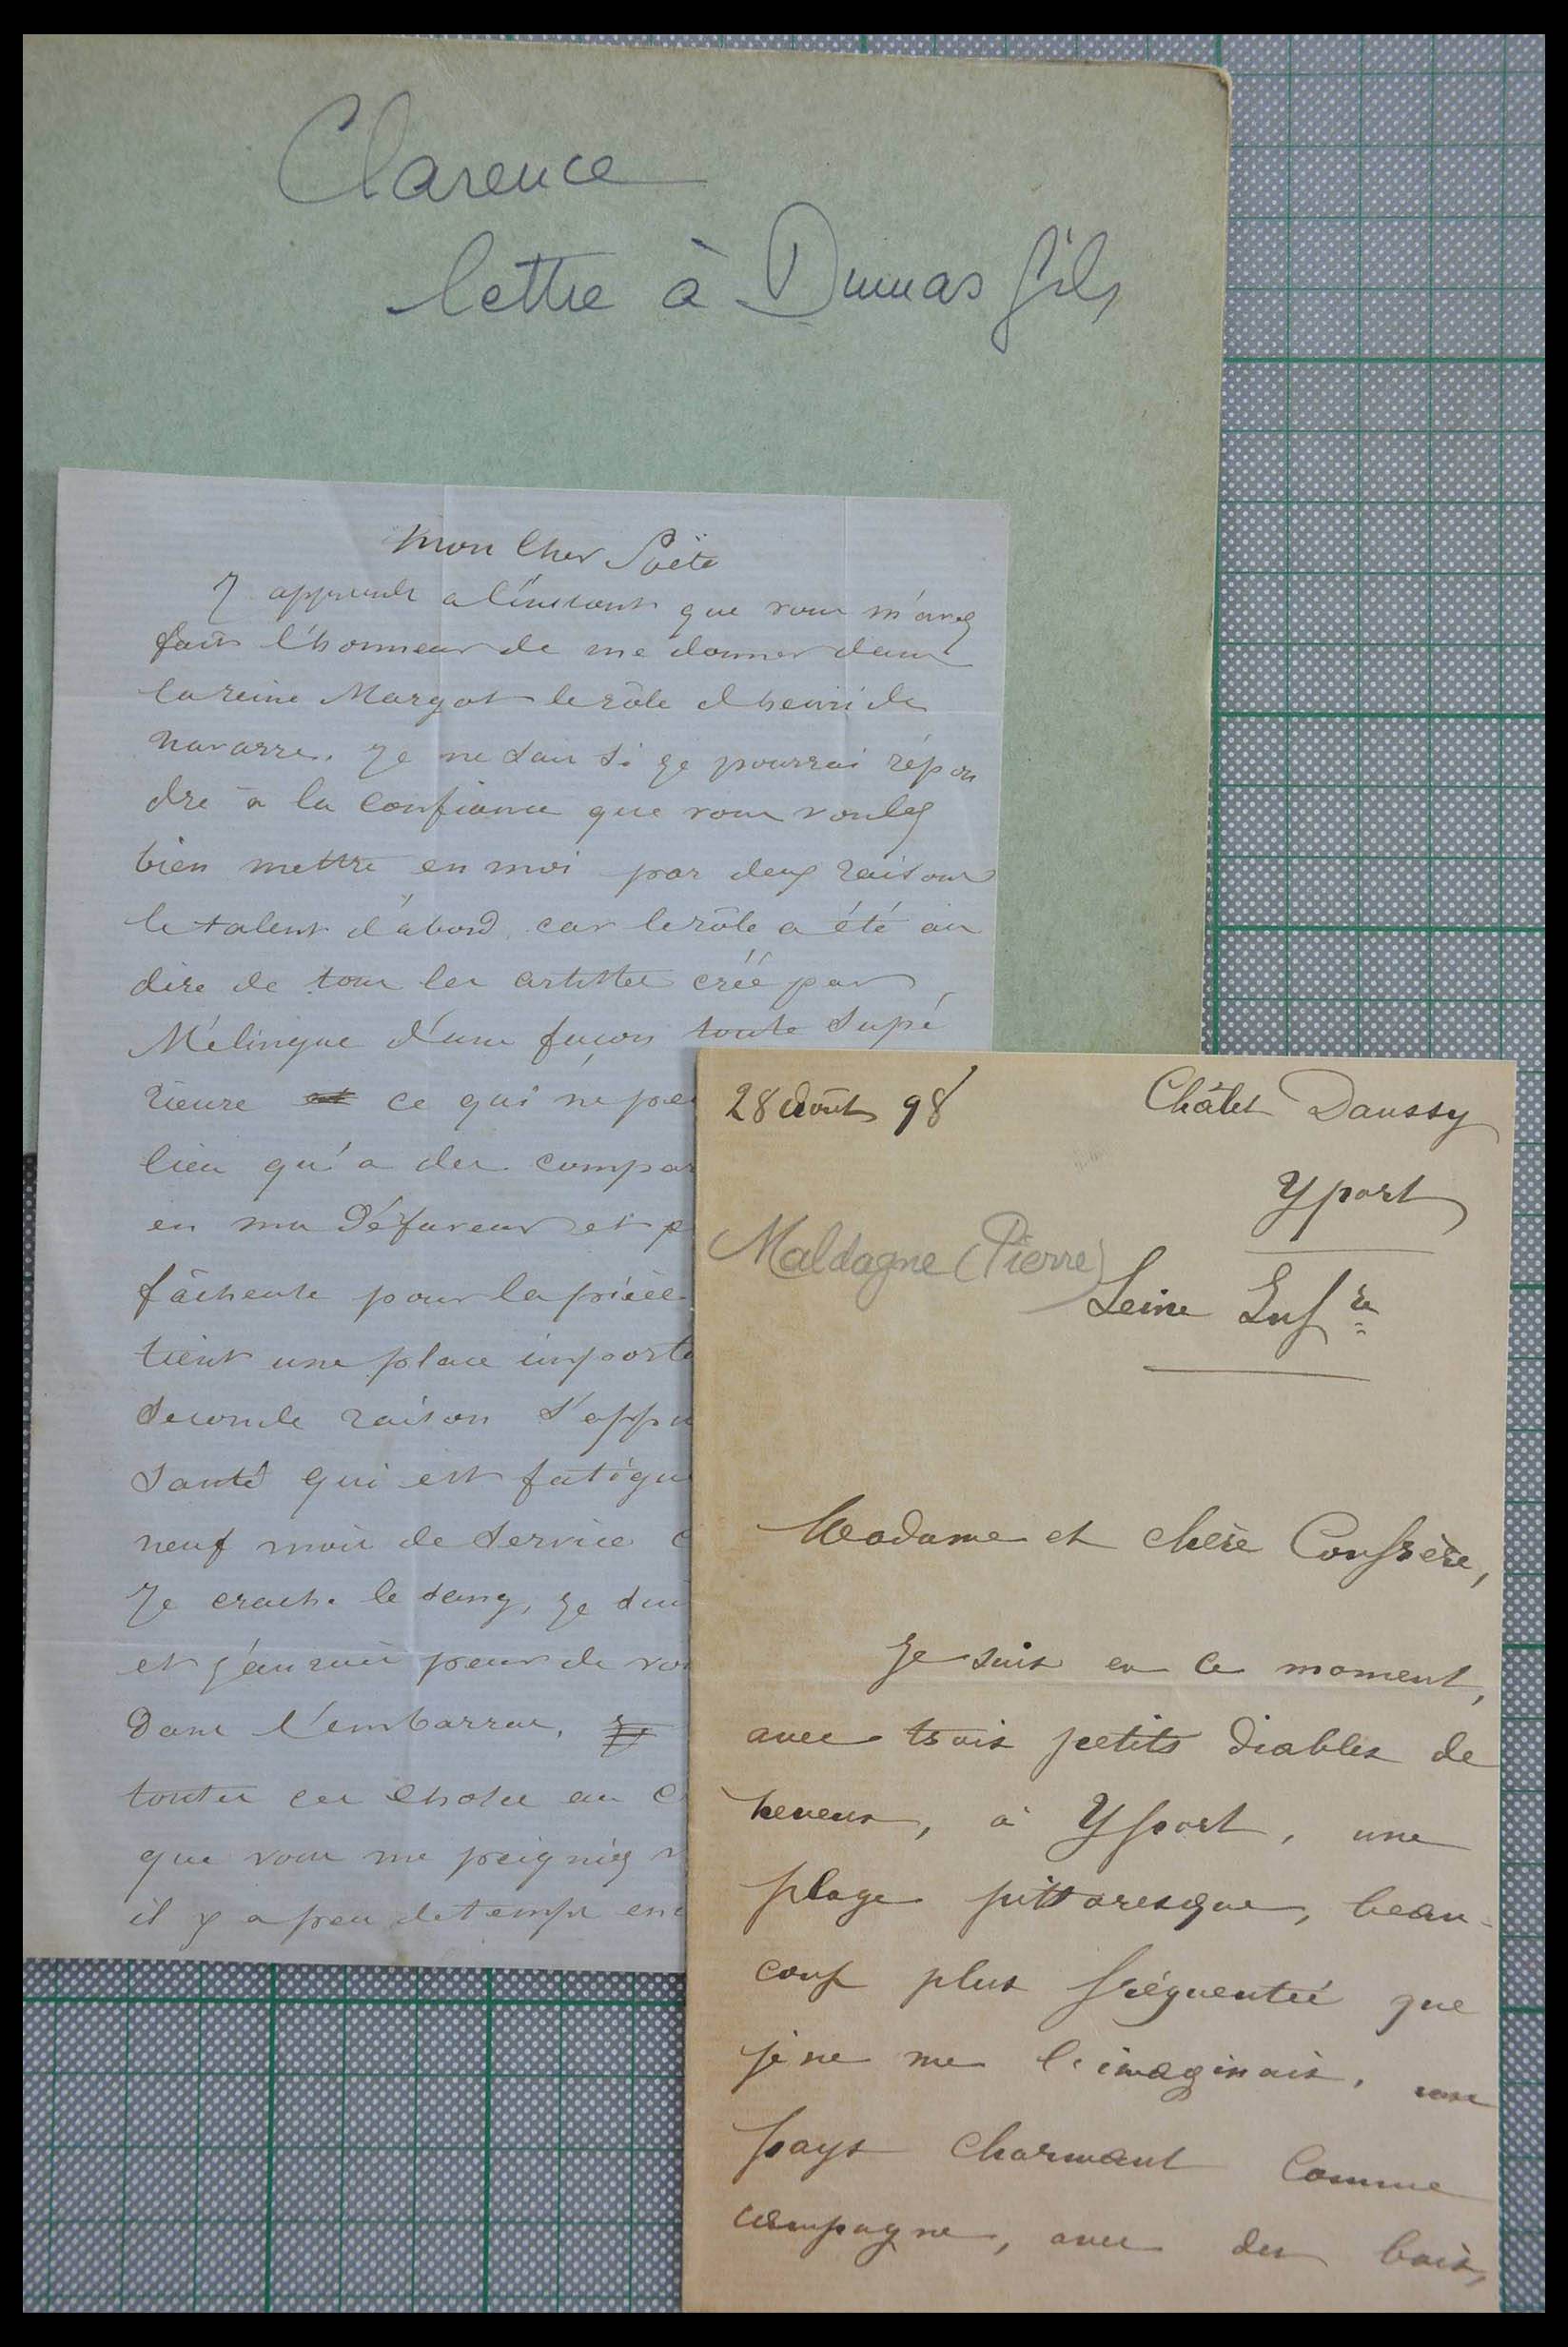 Clarence
lettre à Dumas fils
Mon Cher Poëte
J apprends a l'instant que vous m'avez
fait l'honneur de me donner dans
la reine Margot le rôle d henri de
navarre. Je ne sais si je pourrai répon
dre à la confiance que vous voulez
bien mettre en moi par deux raisons
le talent d'abord, car le rôle a été au
dire de tous les artistes créé par
Mélingue d'une façon toute supé
rieure ce qui ne
lieu qu'a des compar
en ma défaveur et p
fâcheuse pour la pièce
tient une place importa
seconde raison s'appu
santé qui est fatigu
neuf mois de service
Je crache le sang, je sui
et j'aurais peur de vou
dans l'embarras. Je
toutes ces choses au c
que vous me peigniez
il y a peu de temps enc
28 Août 98
Châlet Daussy
Yport
Maldagne (Pierre)
Seine Infre
Madame et chère Confrère,
Je suis en ce moment,
avec trois petits diables de
neveux, à Yport, une
plage pittoresque, beau-
coup plus fréquentée que
je ne me l'imaginais,
pays charmant comme
campagne, avec des bois,